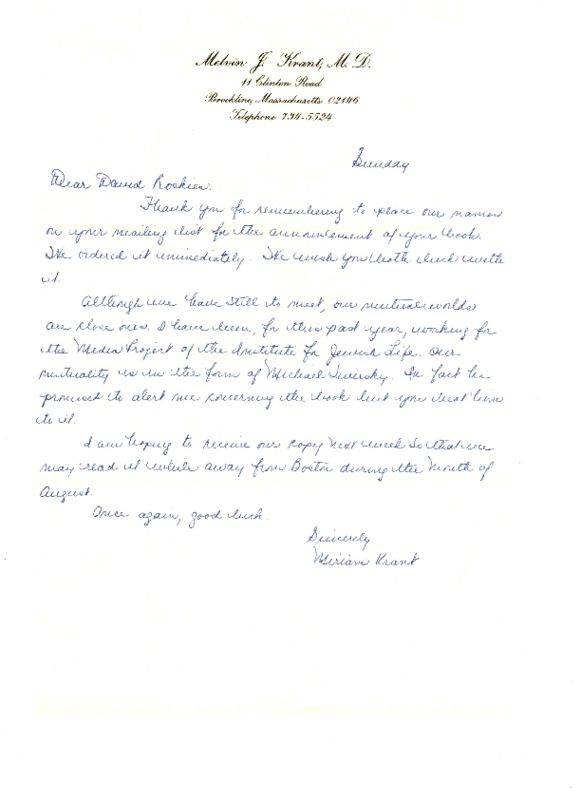 Melvin J. Krant, M. D.
11 Clinton Road
Brookline, Massachusetts 02146
Telephone 734-5524
Sunday
Dear David Roskies.
Thank you for remembering to place our names
on your mailing list for the announcement of your book.
We ordered it immediately. We wish you both luck with
it.
Although we have still to meet, our mutual worlds
are close ones. I have been, for this past year, working for
the Media Project of the Institute for Jewish Life. Our
mutuality is in the form of Michael Swirsky. In fact he
promised to alert me concerning the book but you beat him
to it.
I am hoping to receive our copy next week so that we
may read it while away from Boston during the month of
August.
Once again, good luck.
Sincerely
Miriam Krant